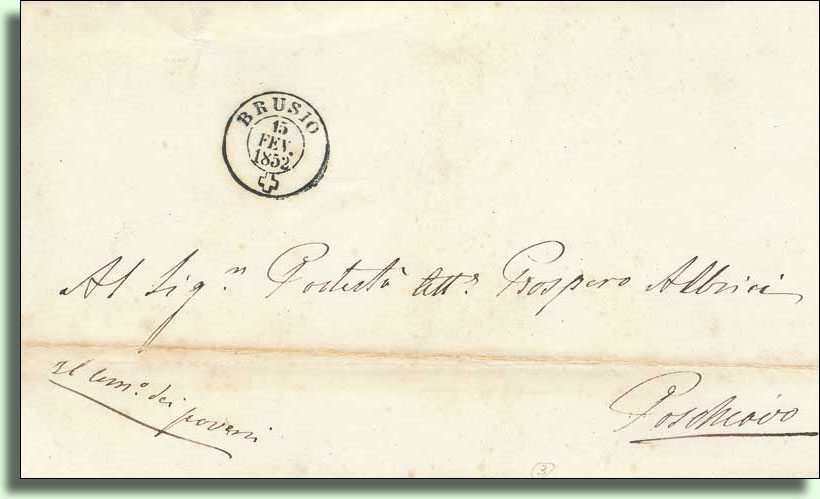 BRUSIO
15
FEV.
1852
Al Sig.n Podestà Att.e Prospero Albrici
Il Com.o dei poveri
Poschiavo
3